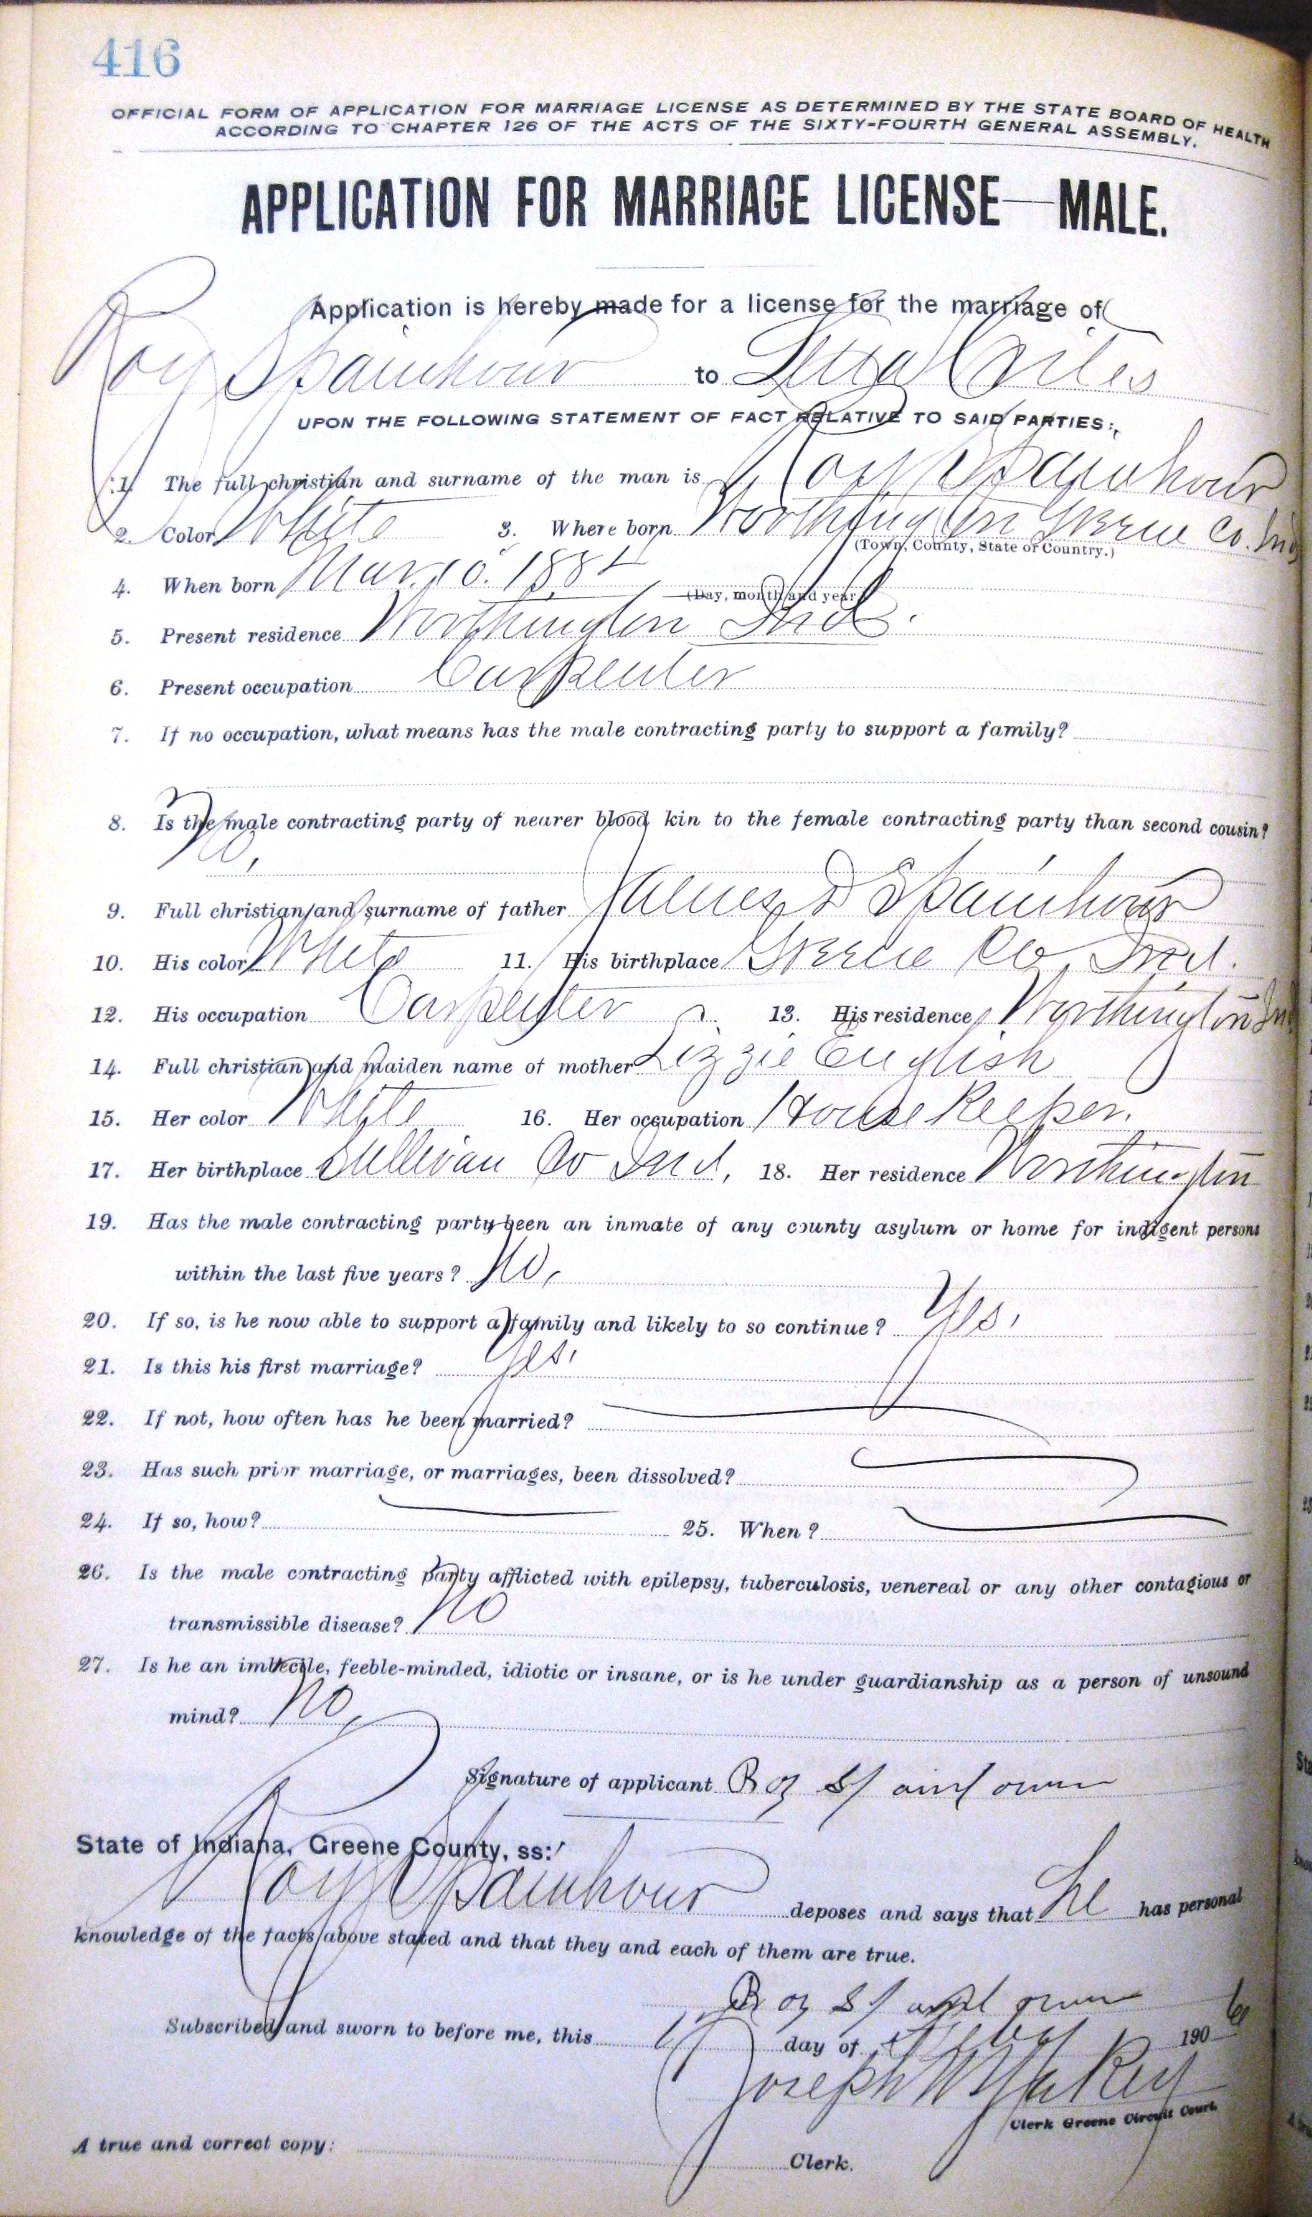 416
OFFICIAL FORM OF APPLICATION FOR MARRIAGE LICENSE AS DETERMINED BY THE STATE BOARD OF HEALTH
ACCORDING TO CHAPTER 126 OF THE ACTS OF THE SIXTY-FOURTH GENERAL ASSEMBLY.
APPLICATION FOR MARRIAGE LICENSE—MALE.
Application is hereby made for a license for the marriage of
Roy Spainhour to Criles
UPON THE FOLLOWING STATEMENT OF FACT RELATIVE TO SAID PARTIES:
1. The full christian and surname of the man is Roy Spainhour
2. Color White 3. Where born Worthington Greene Co. Ind
(Town, County, State or Country.)
4. When born Mar. 10. 188
(Day, month and year)
5. Present residence Worthington Ind.
6. Present occupation Carpenter
7. If no occupation, what means has the male contracting party to support a family?
8. Is the male contracting party of nearer blood kin to the female contracting party than second cousin?
No.
9. Full christian and surname of father James D Spainhour
10. His color White 11. His birthplace Greene Co Ind.
12. His occupation Carpenter 13. His residence Worthington Ind
14. Full christian and maiden name of mother Lizzie English
15. Her color White 16. Her occupation House Keeper.
17. Her birthplace Sullivan Co Ind, 18. Her residence Worthington
19. Has the male contracting party been an inmate of any county asylum or home for indigent persons
within the last five years? No,
20. If so, is he now able to support a family and likely to so continue? Yes,
21. Is this his first marriage? Yes,
22. If not, how often has he been married?
23. Has such prior marriage, or marriages, been dissolved?
24. If so, how? 25. When?
26. Is the male contracting party afflicted with epilepsy, tuberculosis, venereal or any other contagious or
transmissible disease? No
27. Is he an imbecile, feeble-minded, idiotic or insane, or is he under guardianship as a person of unsound
mind? No,
Signature of applicant Roy
State of Indiana, Greene County, ss:
Roy Spainhour deposes and says that he has personal
knowledge of the facts above stated and that they and each of them are true.
Roy
Subscribed and sworn to before me, this day of 1906
Joseph W
Clerk Greene Circuit Court.
A true and correct copy: Clerk.